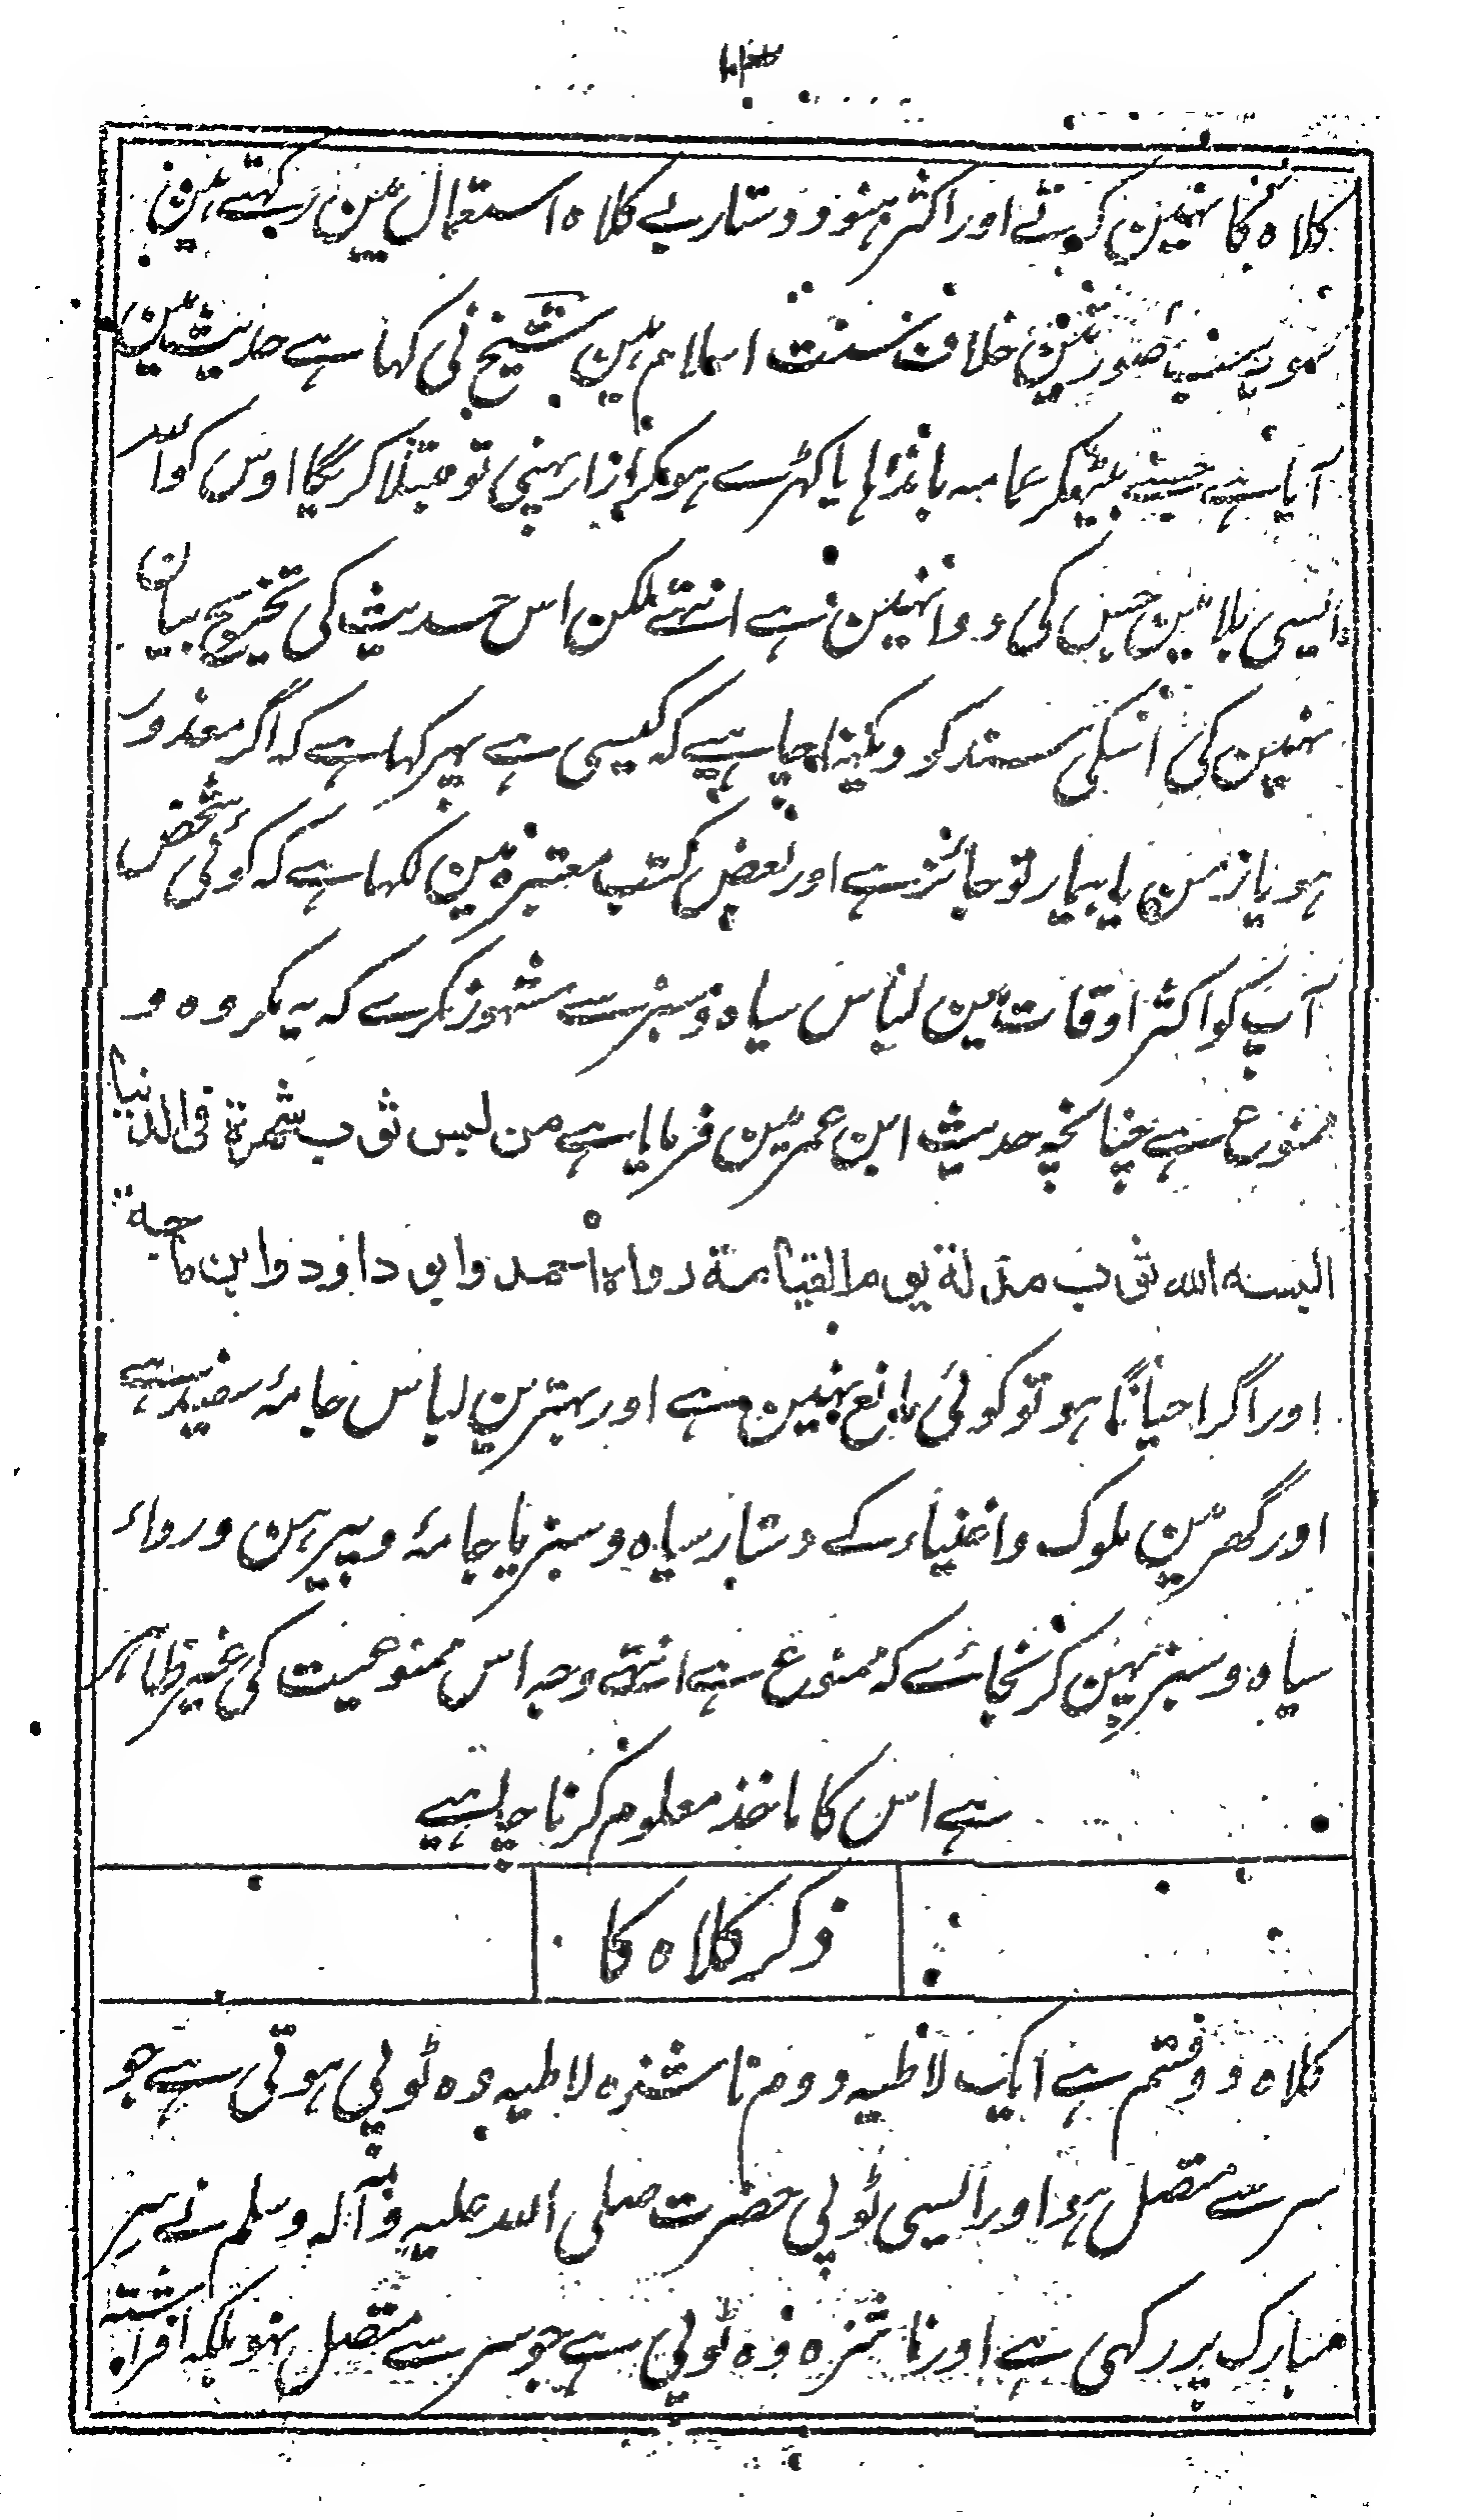 کلاہ کا نہین کہتے اور اکثر ہنود دستار بے کلاہ استعمال مین رکہتے ہین
سو یہ سب صورتین خلاف سنت اسلام ہین شیخ نی کہا ہے حدیث مین
آیا ہے جسنے بیٹہکر عمامہ باندہا یا کہڑے ہوکر ازار پہنی تو مبتلا کریگا اوس کو اللہ
ایسی بلا مین جس کی دوا نہین ہے انتہے لکن اس حدیث کی تخریج بیان
نہین کی اسکی سند کو دیکہنا چاہیے کہ کیسی ہے پہر کہا ہے کہ اگر معذور
ہو یا زمن یا بیمار تو جائز ہے اور بعض کتب معتبرہ مین لکہا ہے کہ کوئی شخص
آپ کو اکثر اوقات مین لباس سیاہ و سبز سے مشہور نکرے کہ یہ مکروہ و
ممنوع ہے چنانچہ حدیث ابن عمر مین فرمایا ہے من لبس ثوب شهرة فی الدنیا
البسه الله ثوب مذلة یوم القیامة رواه احمد وابو داود وابن ماجة
اور اگر احیانًا ہو تو کوئی مانع نہین ہے اور بہترین لباس جامۂ سفید ہے
اور گھر مین ملوک و اغنیاء کے دستار سیاہ و سبز یا جامۂ و پیرہن و رداء
سیاہ و سبز پہن کر نجائے کہ ممنوع ہے انتہے وجہ اس ممنوعیت کی غیر ظاہر
ہے اس کا ماخذ معلوم کرنا چاہیے
ذکر کلاہ کا
کلاہ دو قسم ہے ایک لاطیہ دوم ناشزہ لاطیہ وہ ٹوپی ہوتی ہے جو
سر سے متصل ہو اور ایسی ٹوپی حضرت صلی اللہ علیہ وآلہ وسلم نے سر
مبارک پر رکہی ہے اور ناشزہ وہ ٹوپی ہے جو سر سے متصل نہو بلکہ افراشتہ